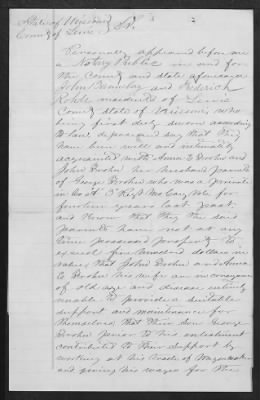 State of Missouri
County of Lewis } SS.
Personally appeared before me
a Notary Public in and for
the County and state aforesaid
John Brumbay and Frederick
Rohde residents of Lewis
County state of Missouri who
being first duly sworn according
to law depose and say that they
have been well and intimately
acquainted with Anna E Brohn and
John Brohn her husband parents
of George Brohn who was a private
in Co. of 3 Regt Mo Cav Vols for
fourteen years last past,
and know that they the said
parents have not at any
time possessed property to
exceed five hundred dollars in
value, that John Brohn and Anna
E Brohn his wife are in consequence
of old age and disease entirely
unable to provide a suitable
support and maintenance for
themselves, that their son George
Brohn prior to his enlistment
contributed to their support by
working at his trade of Wagonmaker
and giving his wages for the